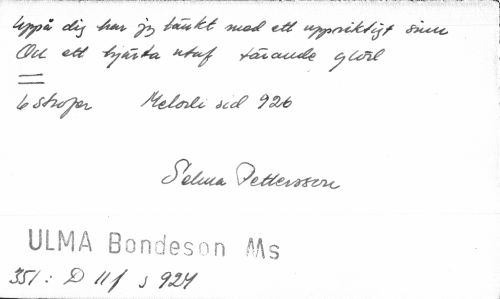 Uppå dig har jag tänkt med ett uppriktigt sinne
Och ett hjärta utaf tärande glöd
6 strofer Melodi sid 926
Selma Pettersson
ULMA Bondeson Ms
351: D 11f s 924